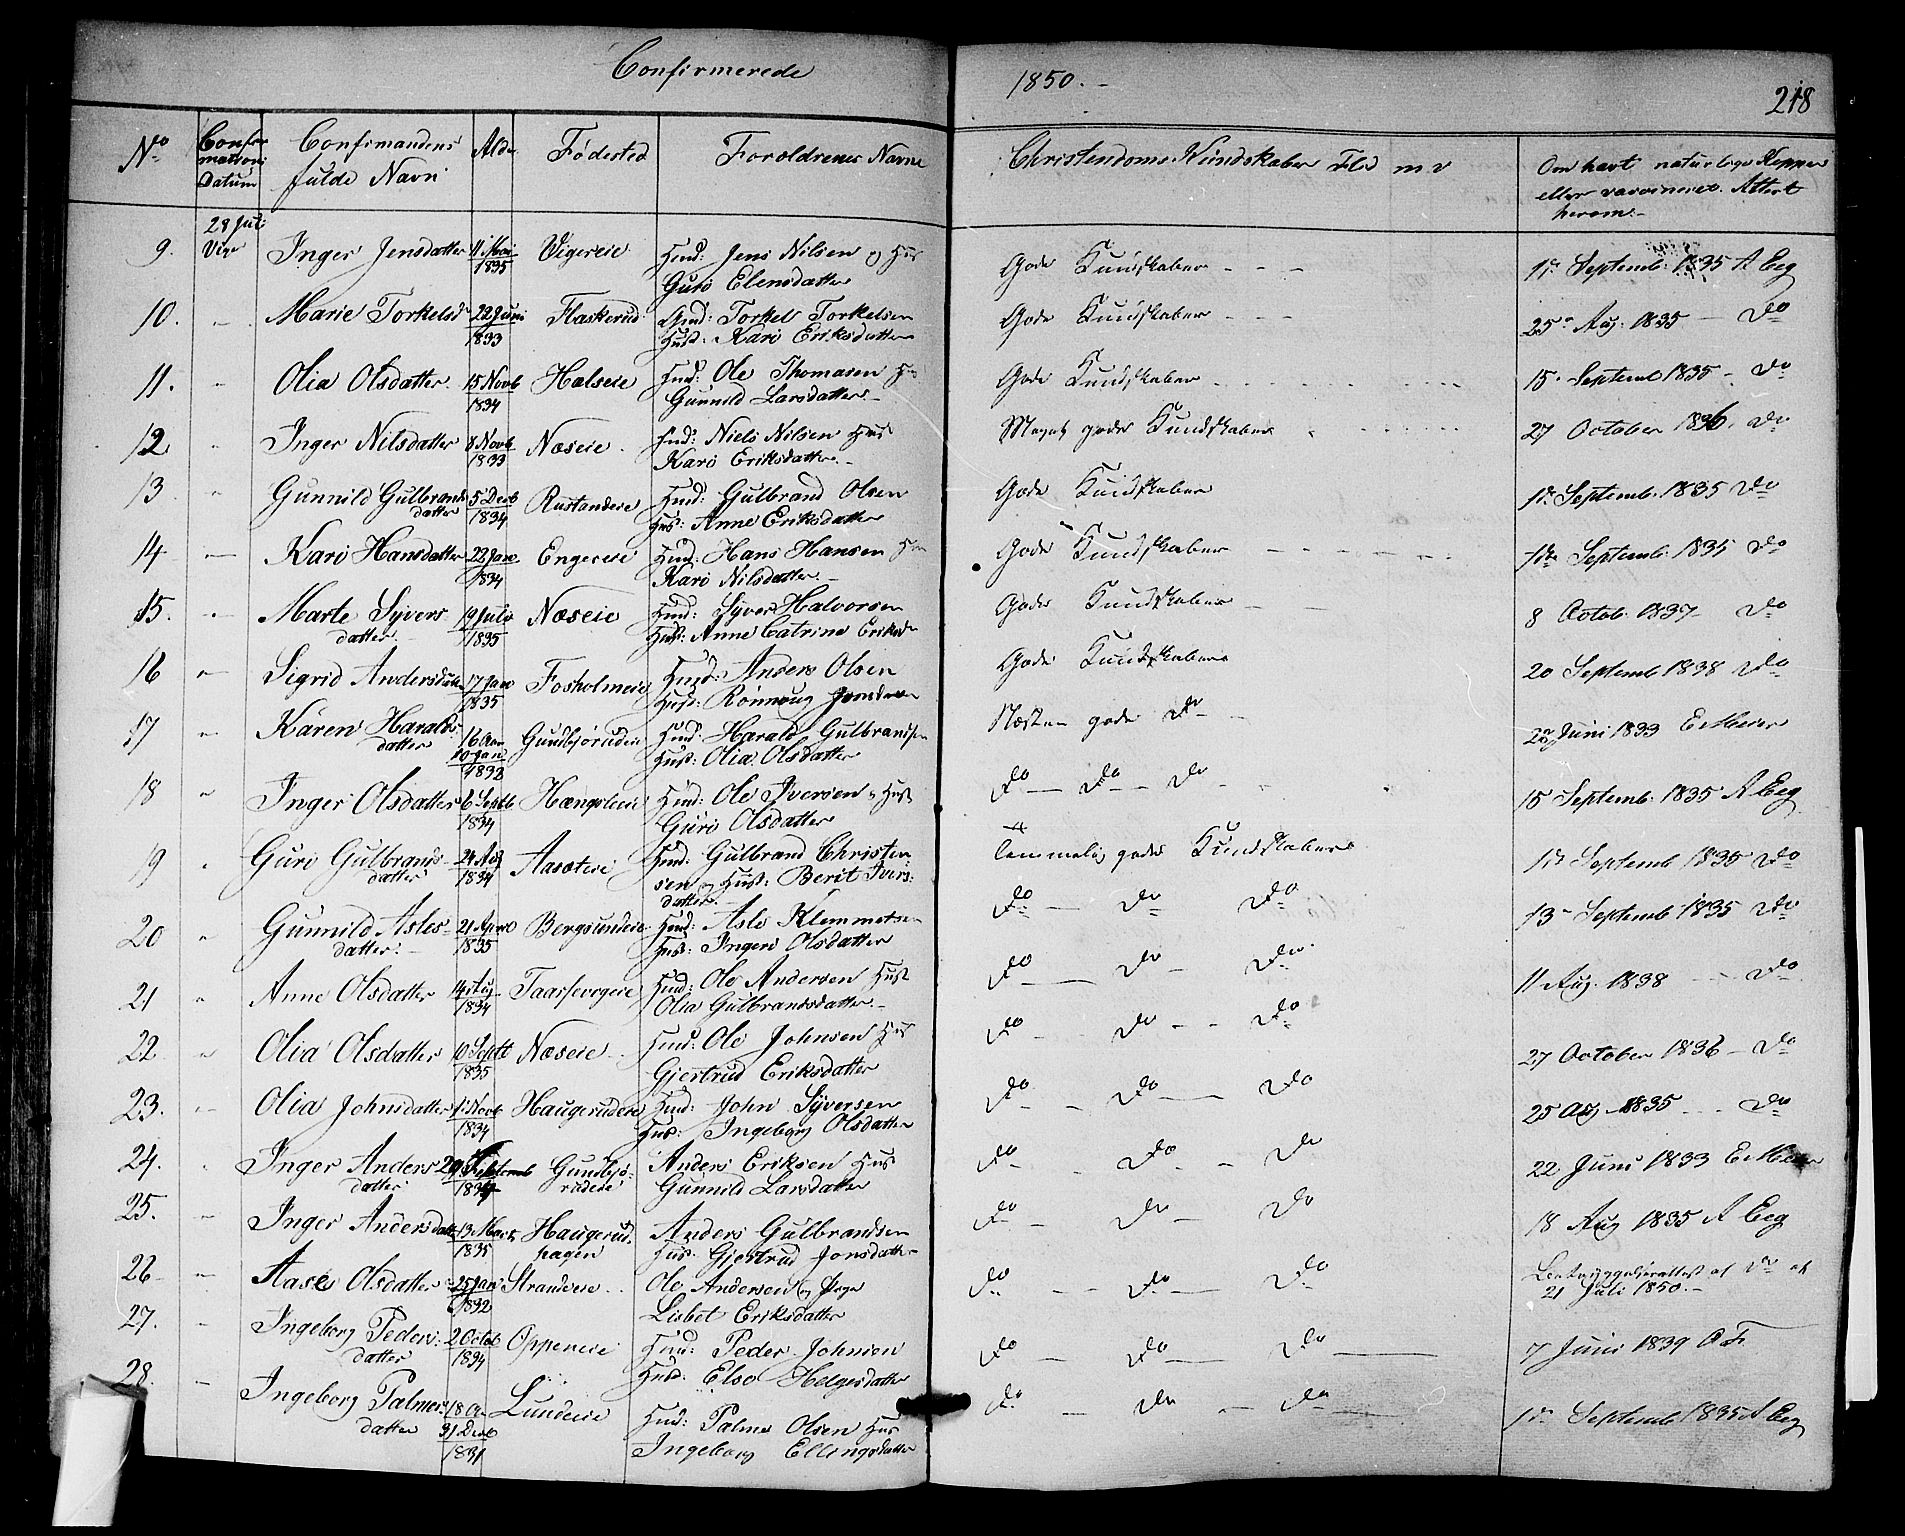 Confirmerede
1850. -
218
No
Confirmations Datum
Confirmandens fulde Navn
Alder
Fødested
Forældrenes Navne
Christendoms Kundskaber Flid m v
Om havt naturlige Kopper
eller vaccineret. Attest
herom. -
28 Juli
9. Vige Inger Jensdatter 11 Mai 1835 Vigereie Husd: Jens Nilsen og Hus
Guro Elensdatter
Gode Kundskaber - - - 1te Septemb. 1835 A Eeg
10. Marie Torkelsd 22 Juni 1833 Flaskerud Gmd: Torkel Torkelsen
Hust: Kari Eriksdatter
Gode Kundskaber - - - 25 Aug. 1835 - Do
11. Olia Olsdatter 15 Novb 1834 Halseie Husd: Ole Thomasen
Gunnild Larsdatter -
Gode Kundskaber 15 Septemb 1835 - Do
12 Inger Nilsdatter 8 Novb 1833 Næseie Husd: Niels Nilsen Hus
Kari Eriksdatter -
Meget gode Kundskaber 27 October 1836. Do
13 Gunnild Gulbrandsdatter 5 Decb 1834 Rustandeie Husd: Gulbrand Olsen
Hus: Anne Eriksdatter
Gode Kundskaber 1te Septemb. 1835 Do
14 Kari Hansdatter 22 Jan 1834 Engereie Husd: Hans Hansen
Kari Nilsdatter -
Gode Kundskaber 1te Septemb. 1835 Do
15. Marte Syversdatter 19 Juli 1835 Næseie Husd: Syver Halvorsen
Hust: Anne Catrine Eriksd
Gode Kundskaber 8 Octob. 1837 - Do
16 Sigrid Andersdatter 17 Jan 1835 Fosholmeie Husd: Anders Olsen
Hust: Rønnaug
Gode Kundskaber 20 Septemb 1838 Do
17 Karen Haraldsdatter 16 Aar 10 Jan 1832 Gundbjørudeie Husd: Harald Gulbrandsen
Hust: Olia Olsdatter
Næsten gode Do 22 Juni 1833 E. Meier
18 Inger Olsdatter 6 Septb 1834 Hængsleeie Husd: Ole Iversen Hust
Guri Olsdatter
Do - Do - Do 15 Septemb. 1835 A Eeg
19 Guri Gulbrandsdatter 24 Aug 1834 Aaseteie Husd: Gulbrand Christen
sen og Hust: Berit Ivers
datter -
Temmelig gode Kundskaber 1te Septemb 1835 Do
20 Gunnild Aslesdatter 21 April 1835 Bergsundeie Husd: Asle Klemmetsen
Hus: Ingeri Olsdatter
Do - Do Do 13 Septemb 1835 Do
21 Anne Olsdatter 14 Aug 1834 Husd: Ole Andersen Hust
Olia Gulbrandsdatter -
Do - Do - Do 11 Aug. 1838 - Do
22 Olia Olsdatter 10 Septb 1835 Næseie Husd: Ole Johnsen Hus
Gjertrud Eriksdatter
Do - Do - - Do 27 October 1836 - Do
23. Olia Johnsdatter 1 Novb 1834 Haugerudeie Husd: John Syversen
Hus: Ingeborg Olsdatter
Do - Do - Do 25 Aug 1835 - Do
24. Inger Andersdatter 29 1834 Gundbjørudeie Anders Eriksen Hus
Gunnild Larsdatter
Do - Do - Do 22 Juni 1833 E. Meier
25. Inger Andersdatter 13 Marts 1835 Haugerudhagen Anders Gulbrandsen
Hus: Gjertrud Jonsdatter
Do - Do - Do 18 Aug 1835 A Eeg
26 Aase Olsdatter 25 Jan 1832 Strandeie Ole Andersen og Pige
Lisbet Eriksdatter
Do - Do - Do af Do af
21 Juli 1850. -
27. Ingeborg Pedersdatter 2 Octob 1834 Oppeneie Husd: Peder Johnsen
Hus: Else Helgesdatter
Do - Do - Do 7 Juni 1839
28. Ingeborg Palmersdatter 18 Aar 31 Decb 1831 Lundeie Husd: Palme Olsen Hus
Ingeborg Ellingsdatter
Do - Do - Do 1te Septemb 1835 A Eeg